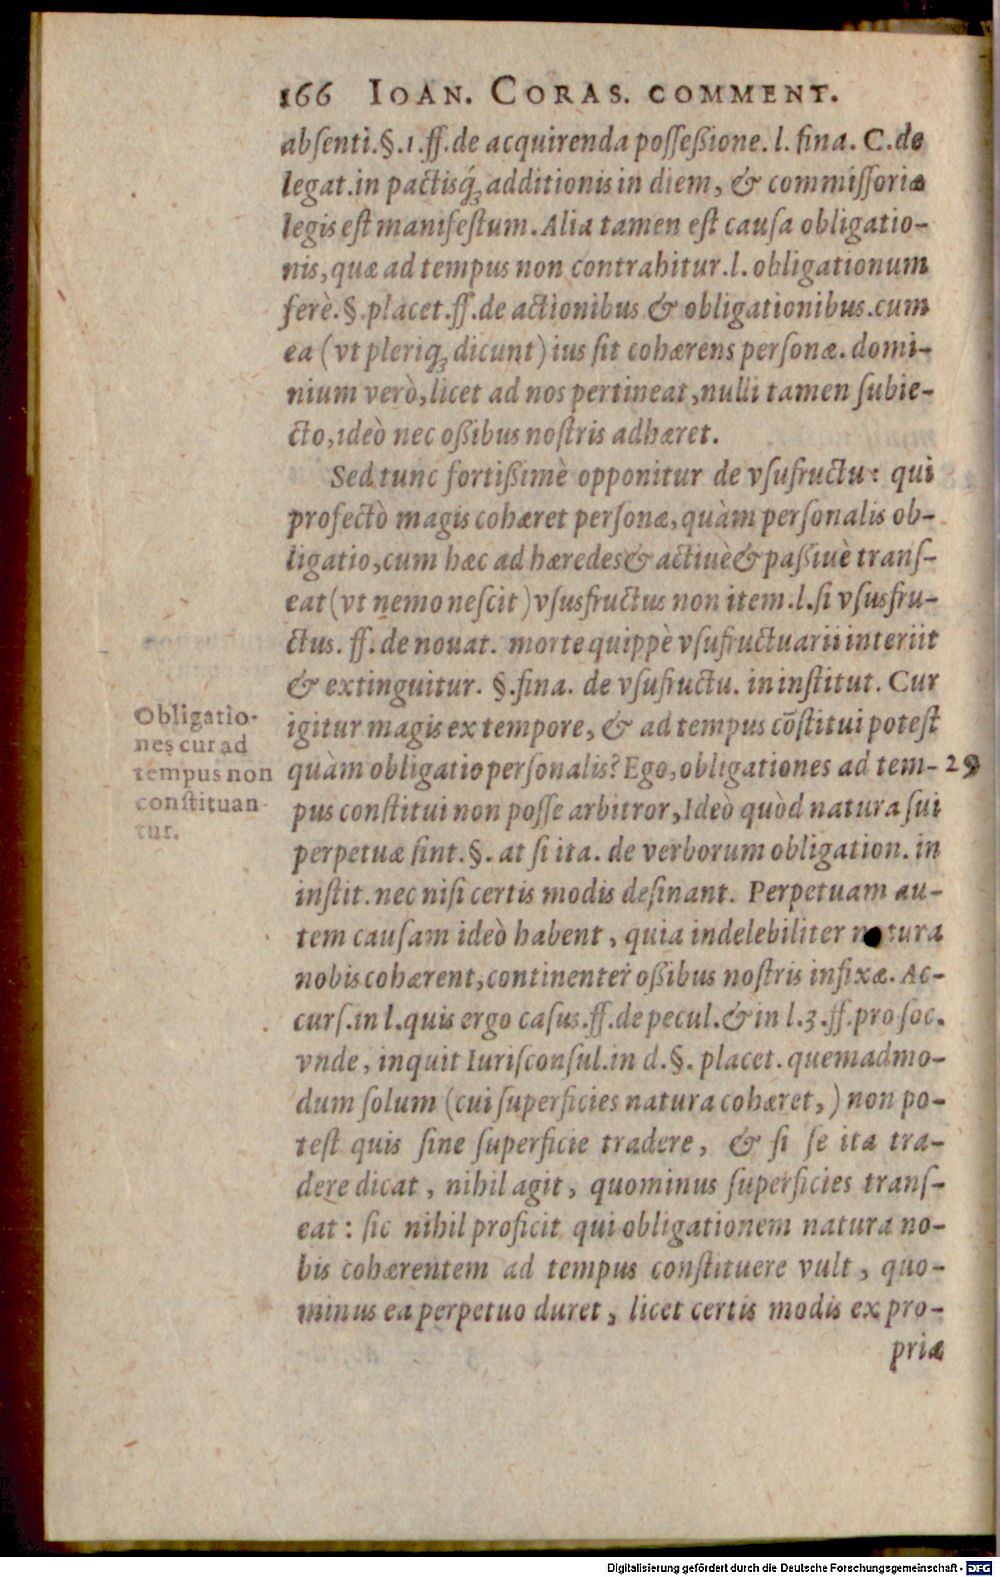 166 IOAN. CORAS. COMMENT.
absenti.§.1.ff.de acquirenda possessione.l. fina. C.de
legat.in pactisq́ꝫ additionis in diem, & commissoriæ
legis est manifestum. Alia tamen est causa obligatio-
nis, quæ ad tempus non contrahitur.l. obligationum
ferè.§.placet.ff.de actionibus & obligationibus.cum
ea (vt pleriqꝫ dicunt) ius sit cohærens personæ. domi-
nium verò, licet ad nos pertineat, nulli tamen subie-
cto, ideò nec oßibus nostris adhæret.
Sed tunc fortißimè opponitur de vsufructu: qui
profectò magis cohæret personæ, quàm personalis ob-
ligatio, cum hæc ad hæredes & actiuè & paßiuè trans-
eat (vt nemo nescit) vsusfructus non item.l.si vsusfru-
ctus. ff. de nouat. morte quippè vsufructuarii interiit
& extinguitur. §.fina. de vsufructu. in institut. Cur
igitur magis ex tempore, & ad tempus cōstitui potest
quàm obligatio personalis? Ego, obligationes ad tem- 29
pus constitui non posse arbitror, Ideò quòd natura sui
perpetuæ sint.§. at si ita. de verborum obligation. in
instit. nec nisi certis modis desinant. Perpetuam au-
tem causam ideò habent, quia indelebiliter natura
nobis cohærent, continenter oßibus nostris infixæ. Ac-
curs.in l.quis ergo casus.ff.de pecul.& in l.3.ff.pro soc.
vnde, inquit Iurisconsul.in d.§. placet. quemadmo-
dum solum (cui superficies natura cohæret,) non po-
test quis sine superficie tradere, & si se ita tra-
dere dicat, nihil agit, quominus superficies trans-
eat: sic nihil proficit qui obligationem natura no-
bis cohærentem ad tempus constituere vult, quo-
minus ea perpetuo duret, licet certis modis ex pro-
priæ
Obligatio-
nes cur ad
tempus non
constituan-
tur.
Digitalisierung gefördert durch die Deutsche Forschungsgemeinschaft - DFG